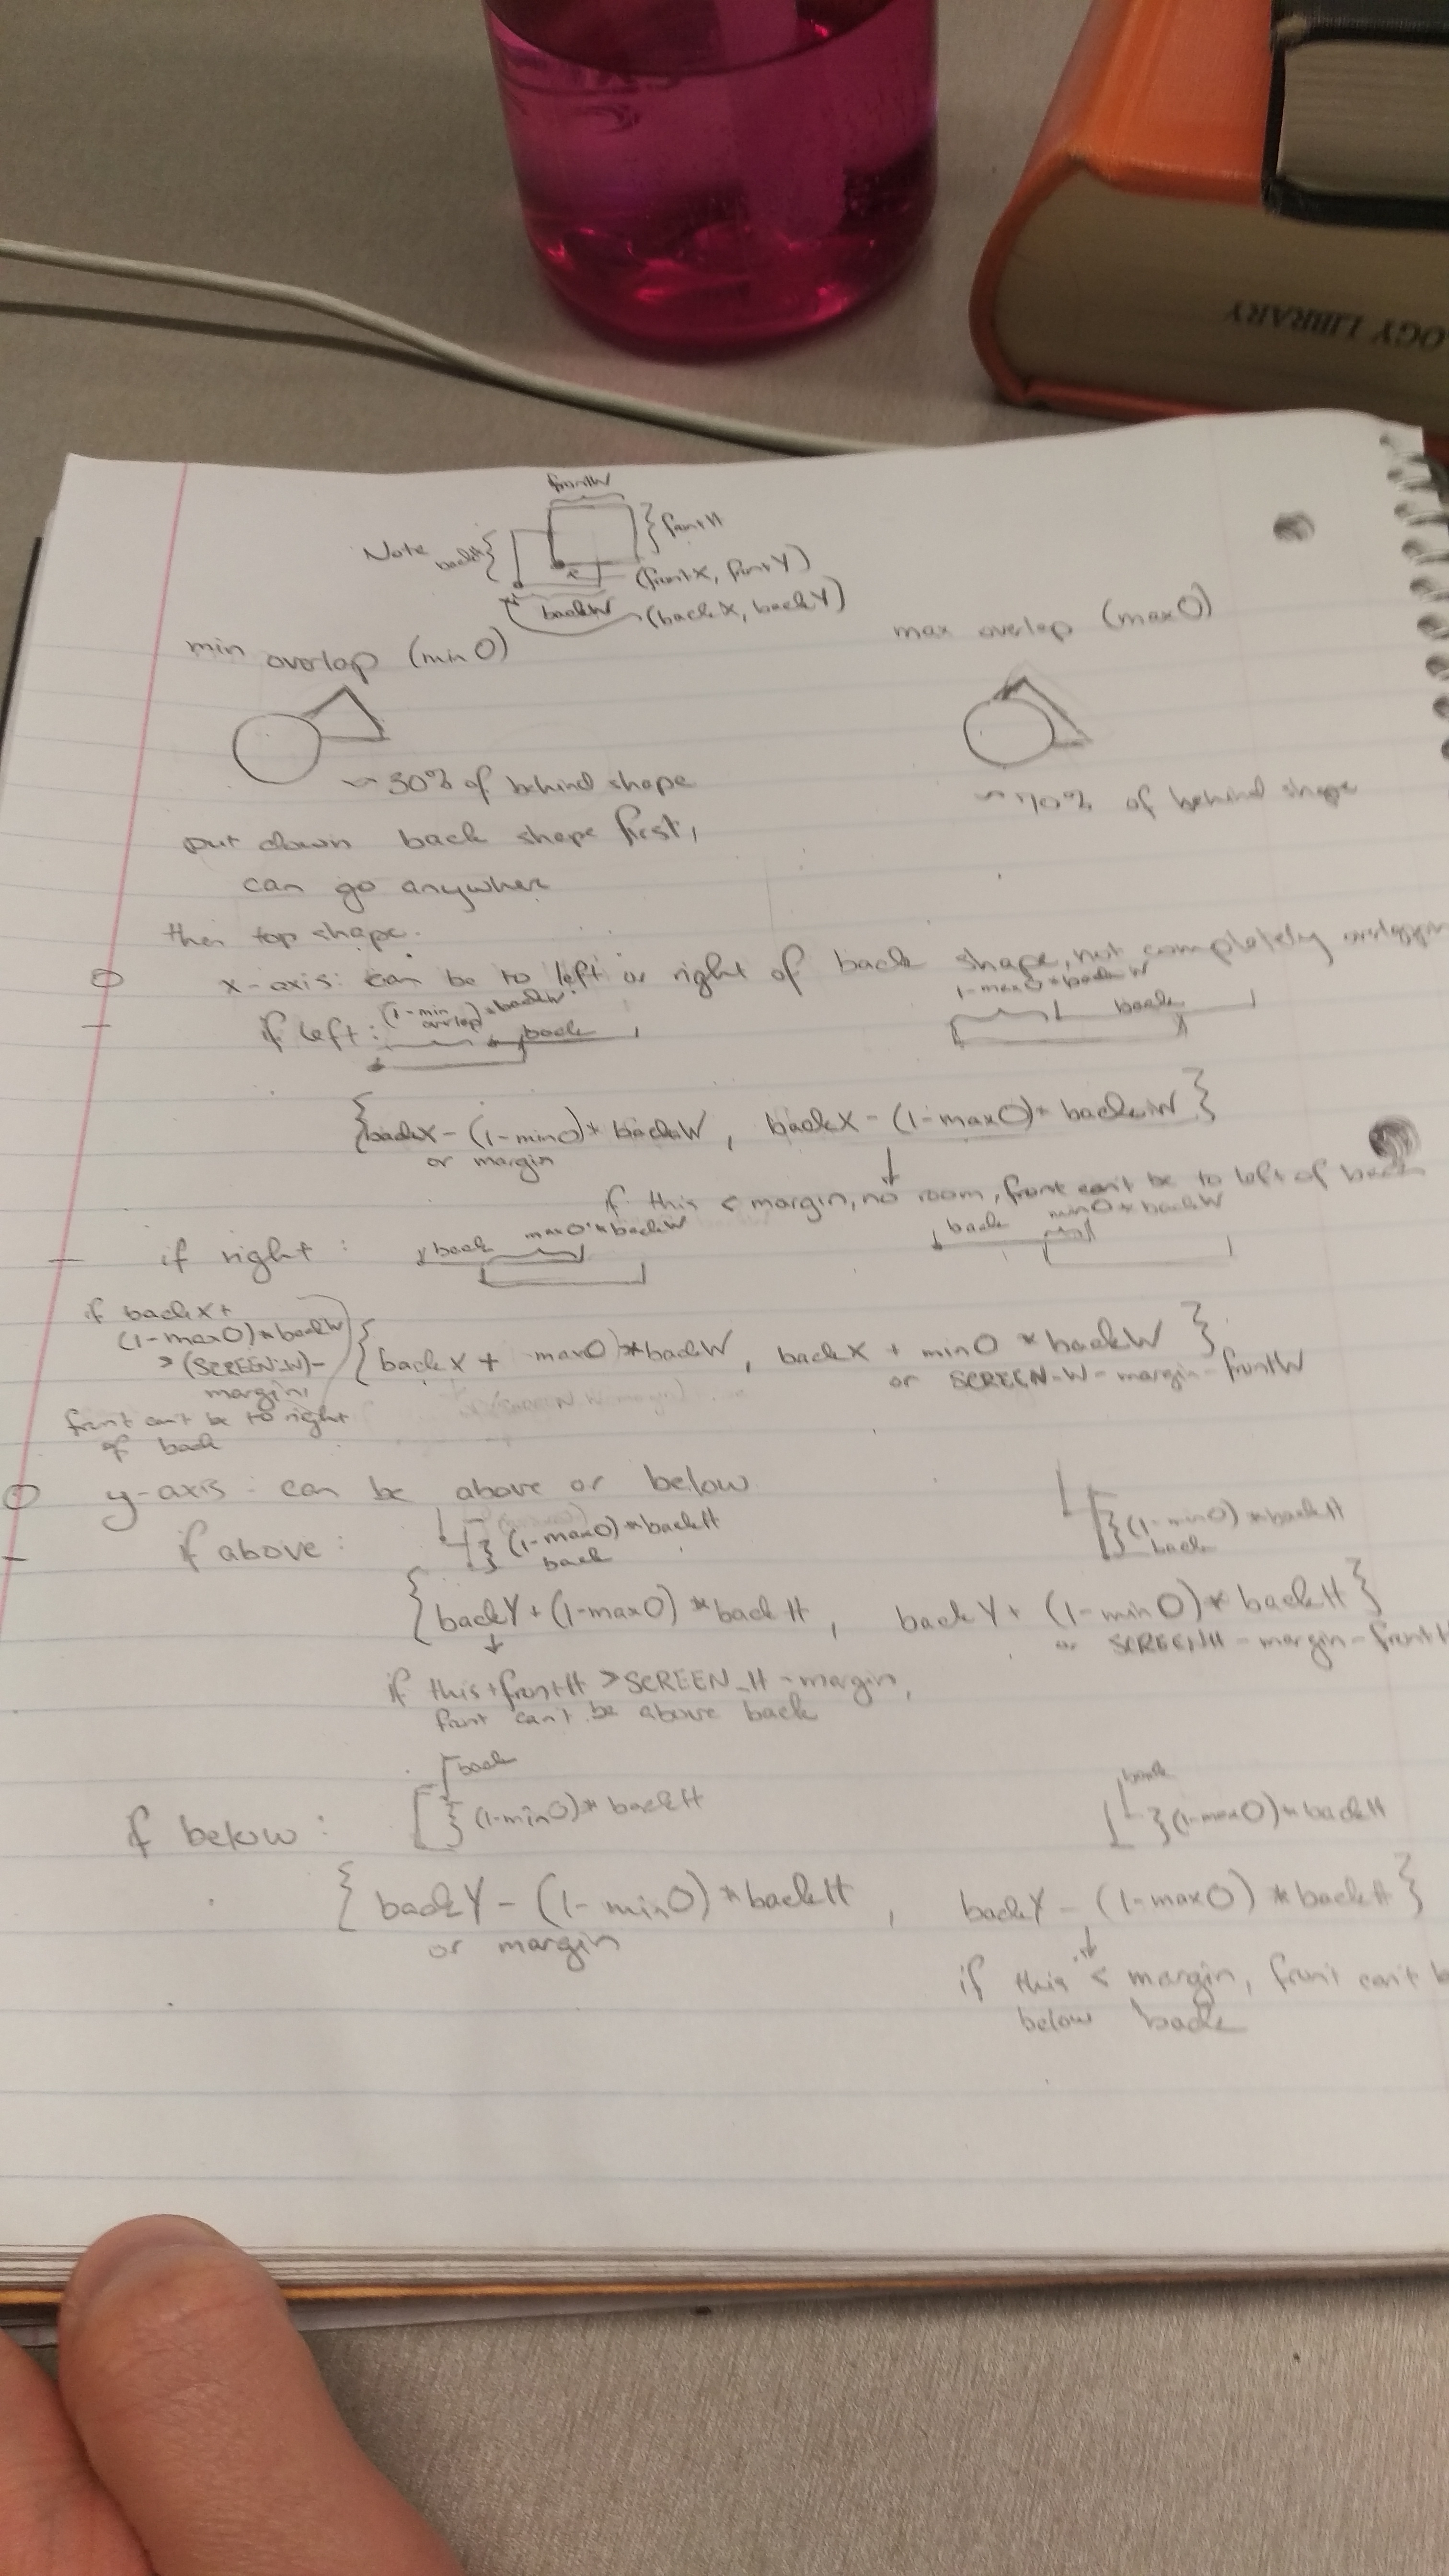 OGY LIBRARY
frontW
Note backH } frontH
(frontX, frontY)
backW (backX, backY)
min overlap (minO)
max overlap (maxO)
~30% of behind shape
~70% of behind shape
put down back shape first,
can go anywhere
then top shape.
x-axis: can be to left or right of back shape, not completely overlapping
if left: (1-min overlap)*backW back
1-maxO*backW back
{backX - (1-minO)* backW, backX - (1-maxO)* backW}
or margin
if this < margin, no room, front can't be to left of back
if right: back maxO*backW
back minO*backW
if backX+
(1-maxO)*backW
>(SCREEN_W)-
margin,
front can't be to right
of back
{backX + maxO)*backW, backX + minO * backW}
or SCREEN_W - margin - frontW
y-axis: can be above or below
if above: } (1-maxO)*backH
back
} (1-minO)*backH
back
{backY + (1-maxO) *backH, backY + (1-minO)* backH}
or SCREENH - margin - frontH
if this+frontH > SCREEN_H - margin,
front can't be above back
back
if below: } (1-minO)* backH
back
} (1-maxO)*backH
{backY - (1-minO) *backH, backY - (1-maxO) *backH}
or margin
if this < margin, front can't b
below back